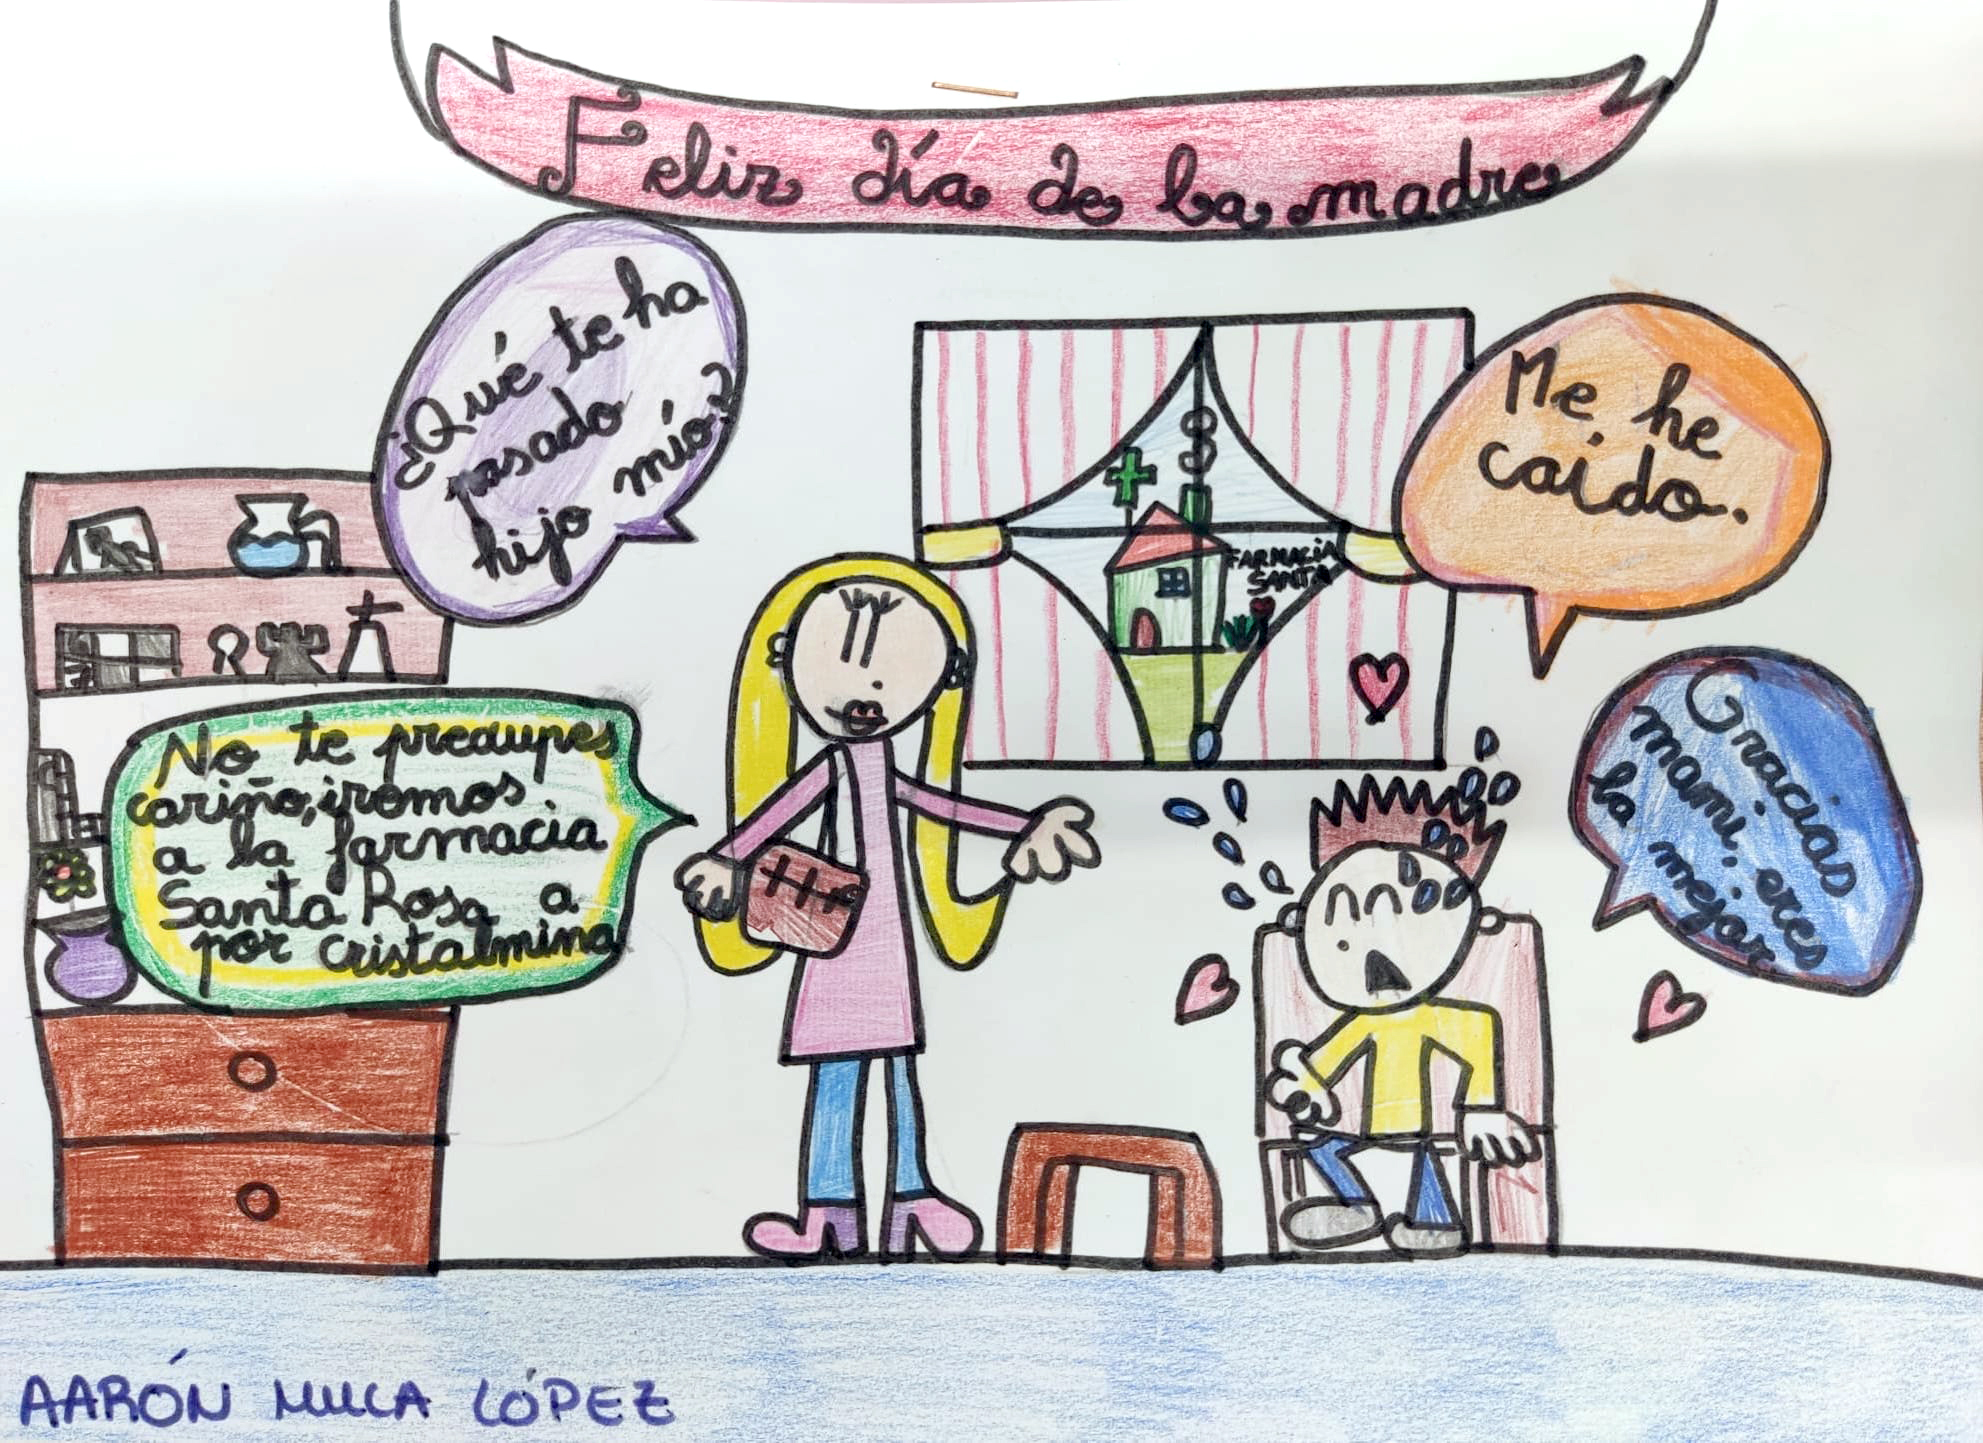 Feliz día de la madre
¿Qué te ha
pasado
hijo mío?
Me he
caído.
FARMACIA
SANTA
No te preocupes
cariño, iremos
a la farmacia
Santa Rosa a
por cristalmina
Gracias
mami, eres
la mejor.
AARÓN MULA LÓPEZ